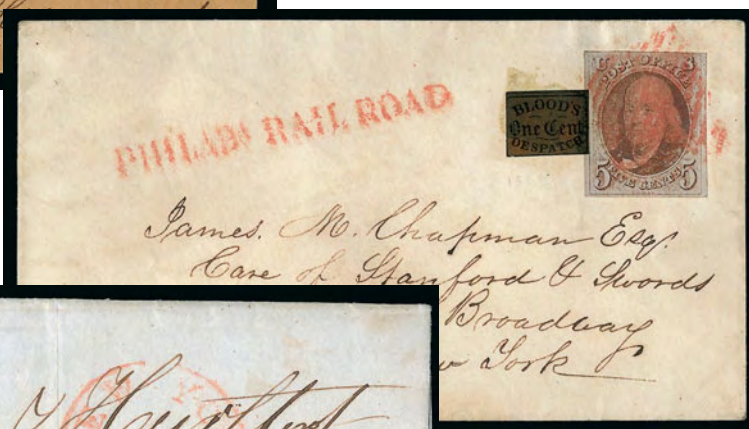 PHILADA RAIL ROAD
BLOOD'S
One Cent
DESPATCH
U S
POST OFFICE
5 FIVE CENTS 5
James. M. Chapman Esq.
Care of Stanford & Swords
Broadway
York